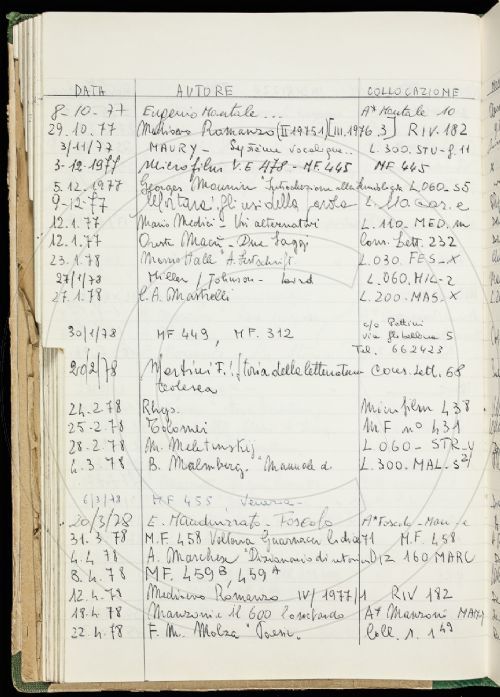 DATA AUTORE COLLOCAZIONE
8-10-77 Eugenio Montale... A* Montale 10
29.10.77 Medioevo Romanzo (II 1975 1) [III, 1976, 3] RIV. 182
3/11/77 MAURY - Système vocalique. L. 300. STU-f. 11
3-12-1977 Microfilm V.E 478 - MF. 445 MF 445
5.12.1977 Georges Mounin Introduzione alla L.060-S5
9-12-77 gli usi della parola L.
12.1.77 Mario Medici - Usi alternativi L. 110-MED. m
12.1.77 Oreste Macrì - Due Saggi Cons. Lett. 232
23.1.78 L.030. FES-X
27/1/78 Miller / Johnson - L.060. MIL-2
27.1.78 C.A. Mastrelli L.200. MAS-X
30/1/78 MF 449, MF. 312 c/o Pottini
via 5
Tel. 662423
20/2/78 Martini F. Storia della letteratura Cons. Lett. 68
tedesca
24.2.78 Rhys. Microfilm 438
25-2.78 Tolomei MF n° 431
28.2.78 M. Meletinskij L 060-STR-V
4.3.78 B. Malmberg. "Manuale d. L.300. MAL-S
6/3/78 MF 455
20/3/78 E. - Foscolo A* Foscolo -
31.3 78 M.F. 458 Vittoria Guarnacci M.F. 458
4.4 78 A. Marchese "Dizionario di retorica DIZ 160 MARC
8.4.78 MF. 459 B, 459 A
12.4.78 Medioevo Romanzo IV/1977/1 RIV 182
18.4.78 Manzoni e il 600 lombardo A* Manzoni
22.4.78 F. M. Molza "Poesie. Coll. 1. 149